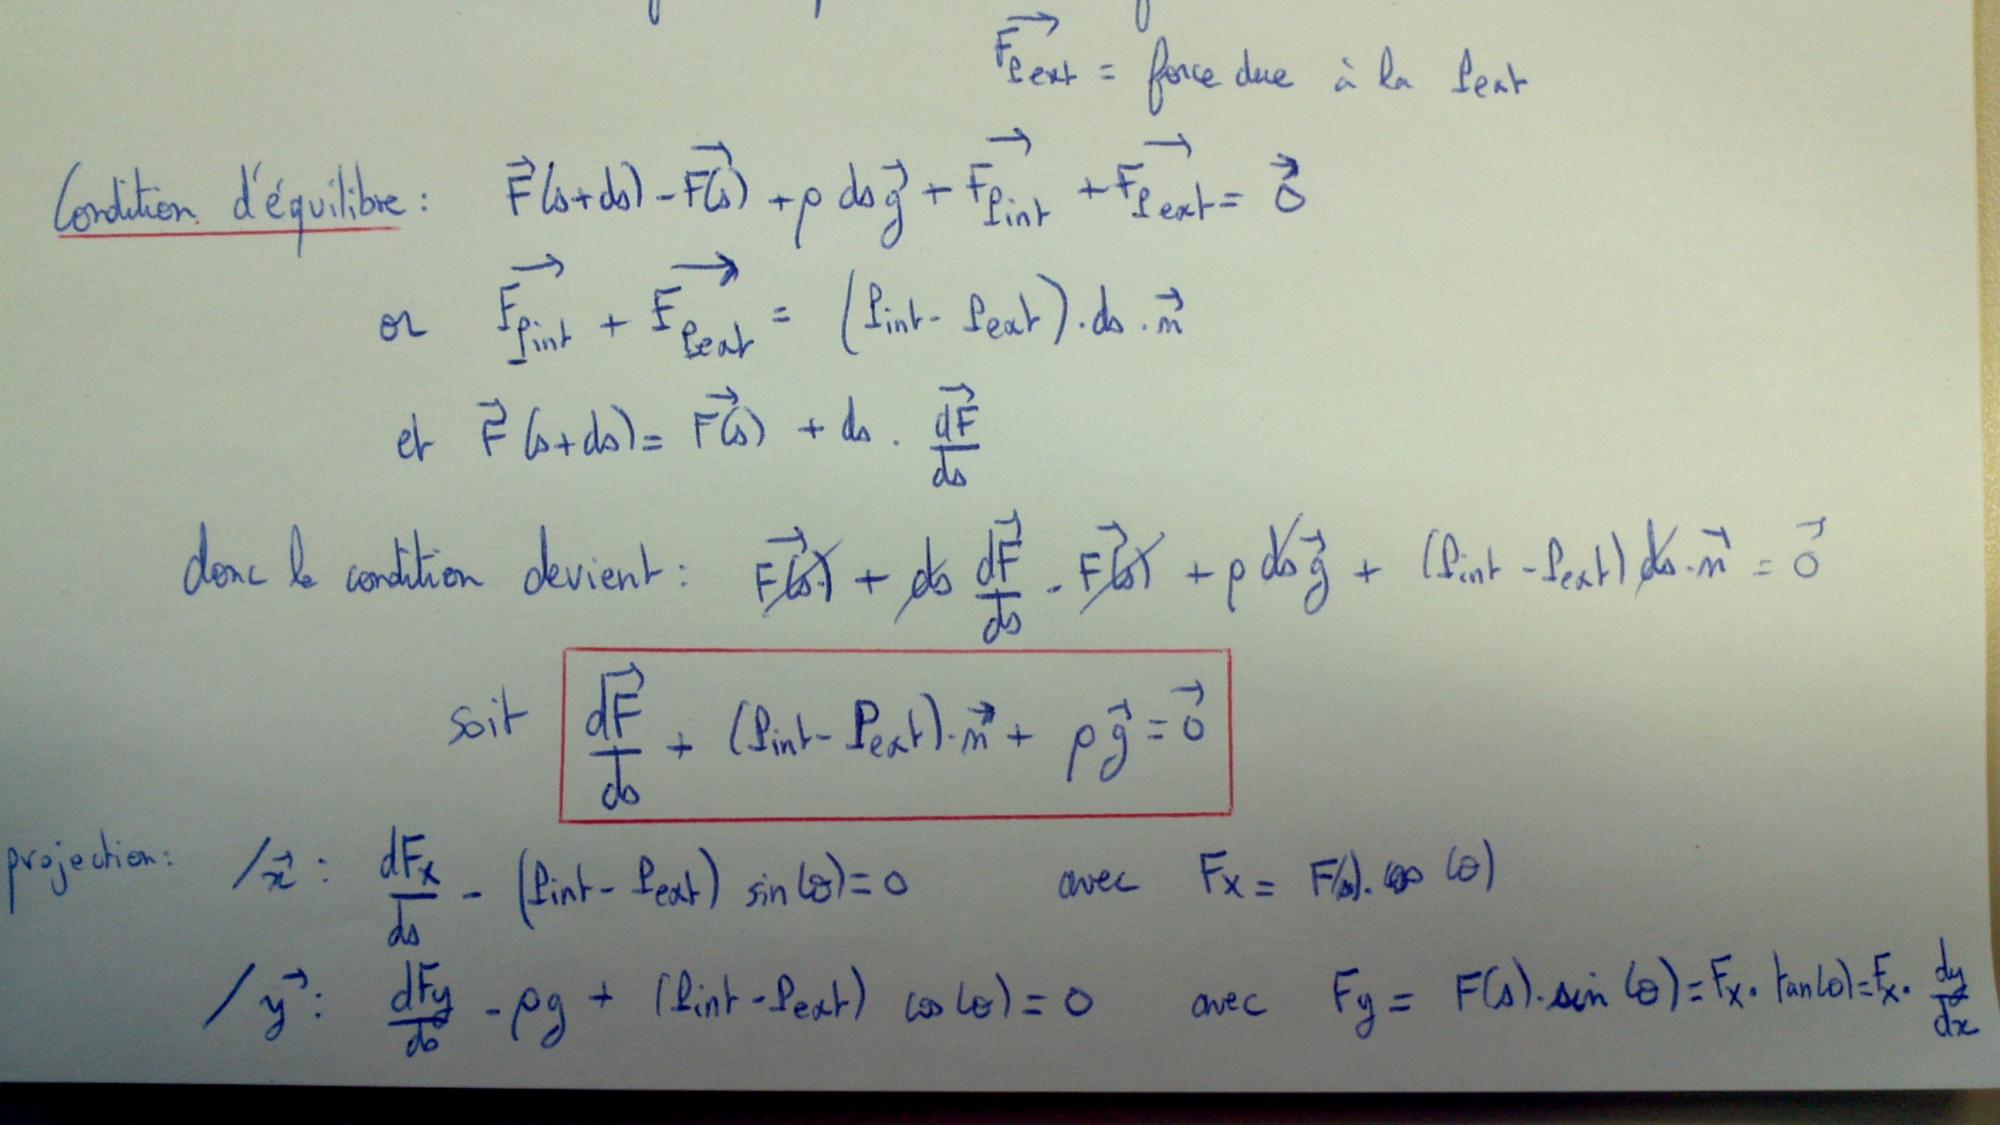 F⃗_Pext = force due à la Pext
Condition d'équilibre : F⃗(s+ds) - F⃗(s) + ρ ds g⃗ + F⃗_Pint + F⃗_Pext = 0⃗
or F⃗_Pint + F⃗_Pext = (Pint - Pext).ds.n⃗
et F⃗(s+ds) = F⃗(s) + ds . dF⃗/ds
donc la condition devient : F⃗(s) + ds dF⃗/ds - F⃗(s) + ρ ds g⃗ + (Pint - Pext) ds.n⃗ = 0⃗
soit dF⃗/ds + (Pint - Pext).n⃗ + ρ g⃗ = 0⃗
projection : /x⃗ : dFx/ds - (Pint - Pext) sin(θ) = 0 avec Fx = F(s).cos(θ)
/y⃗ : dFy/ds - ρg + (Pint - Pext) cos(θ) = 0 avec Fy = F(s).sin(θ) = Fx.tan(θ) = Fx.dy/dx